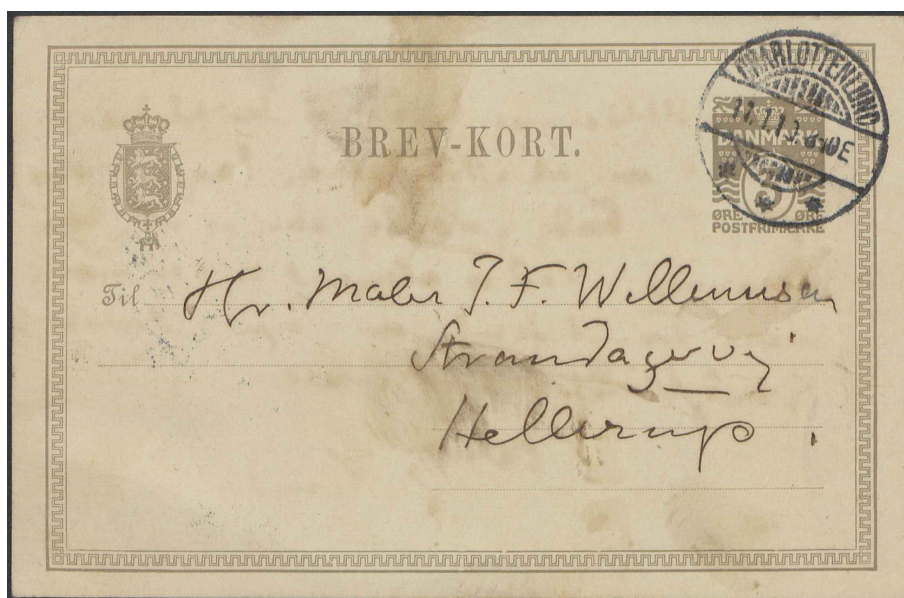 BREV-KORT.
CHARLOTTENLUND
DANMARK
ØRE ØRE
POSTFRIMÆRKE
Til Hr. Maler J. F. Willumsen
Strandagervej
Hellerup.